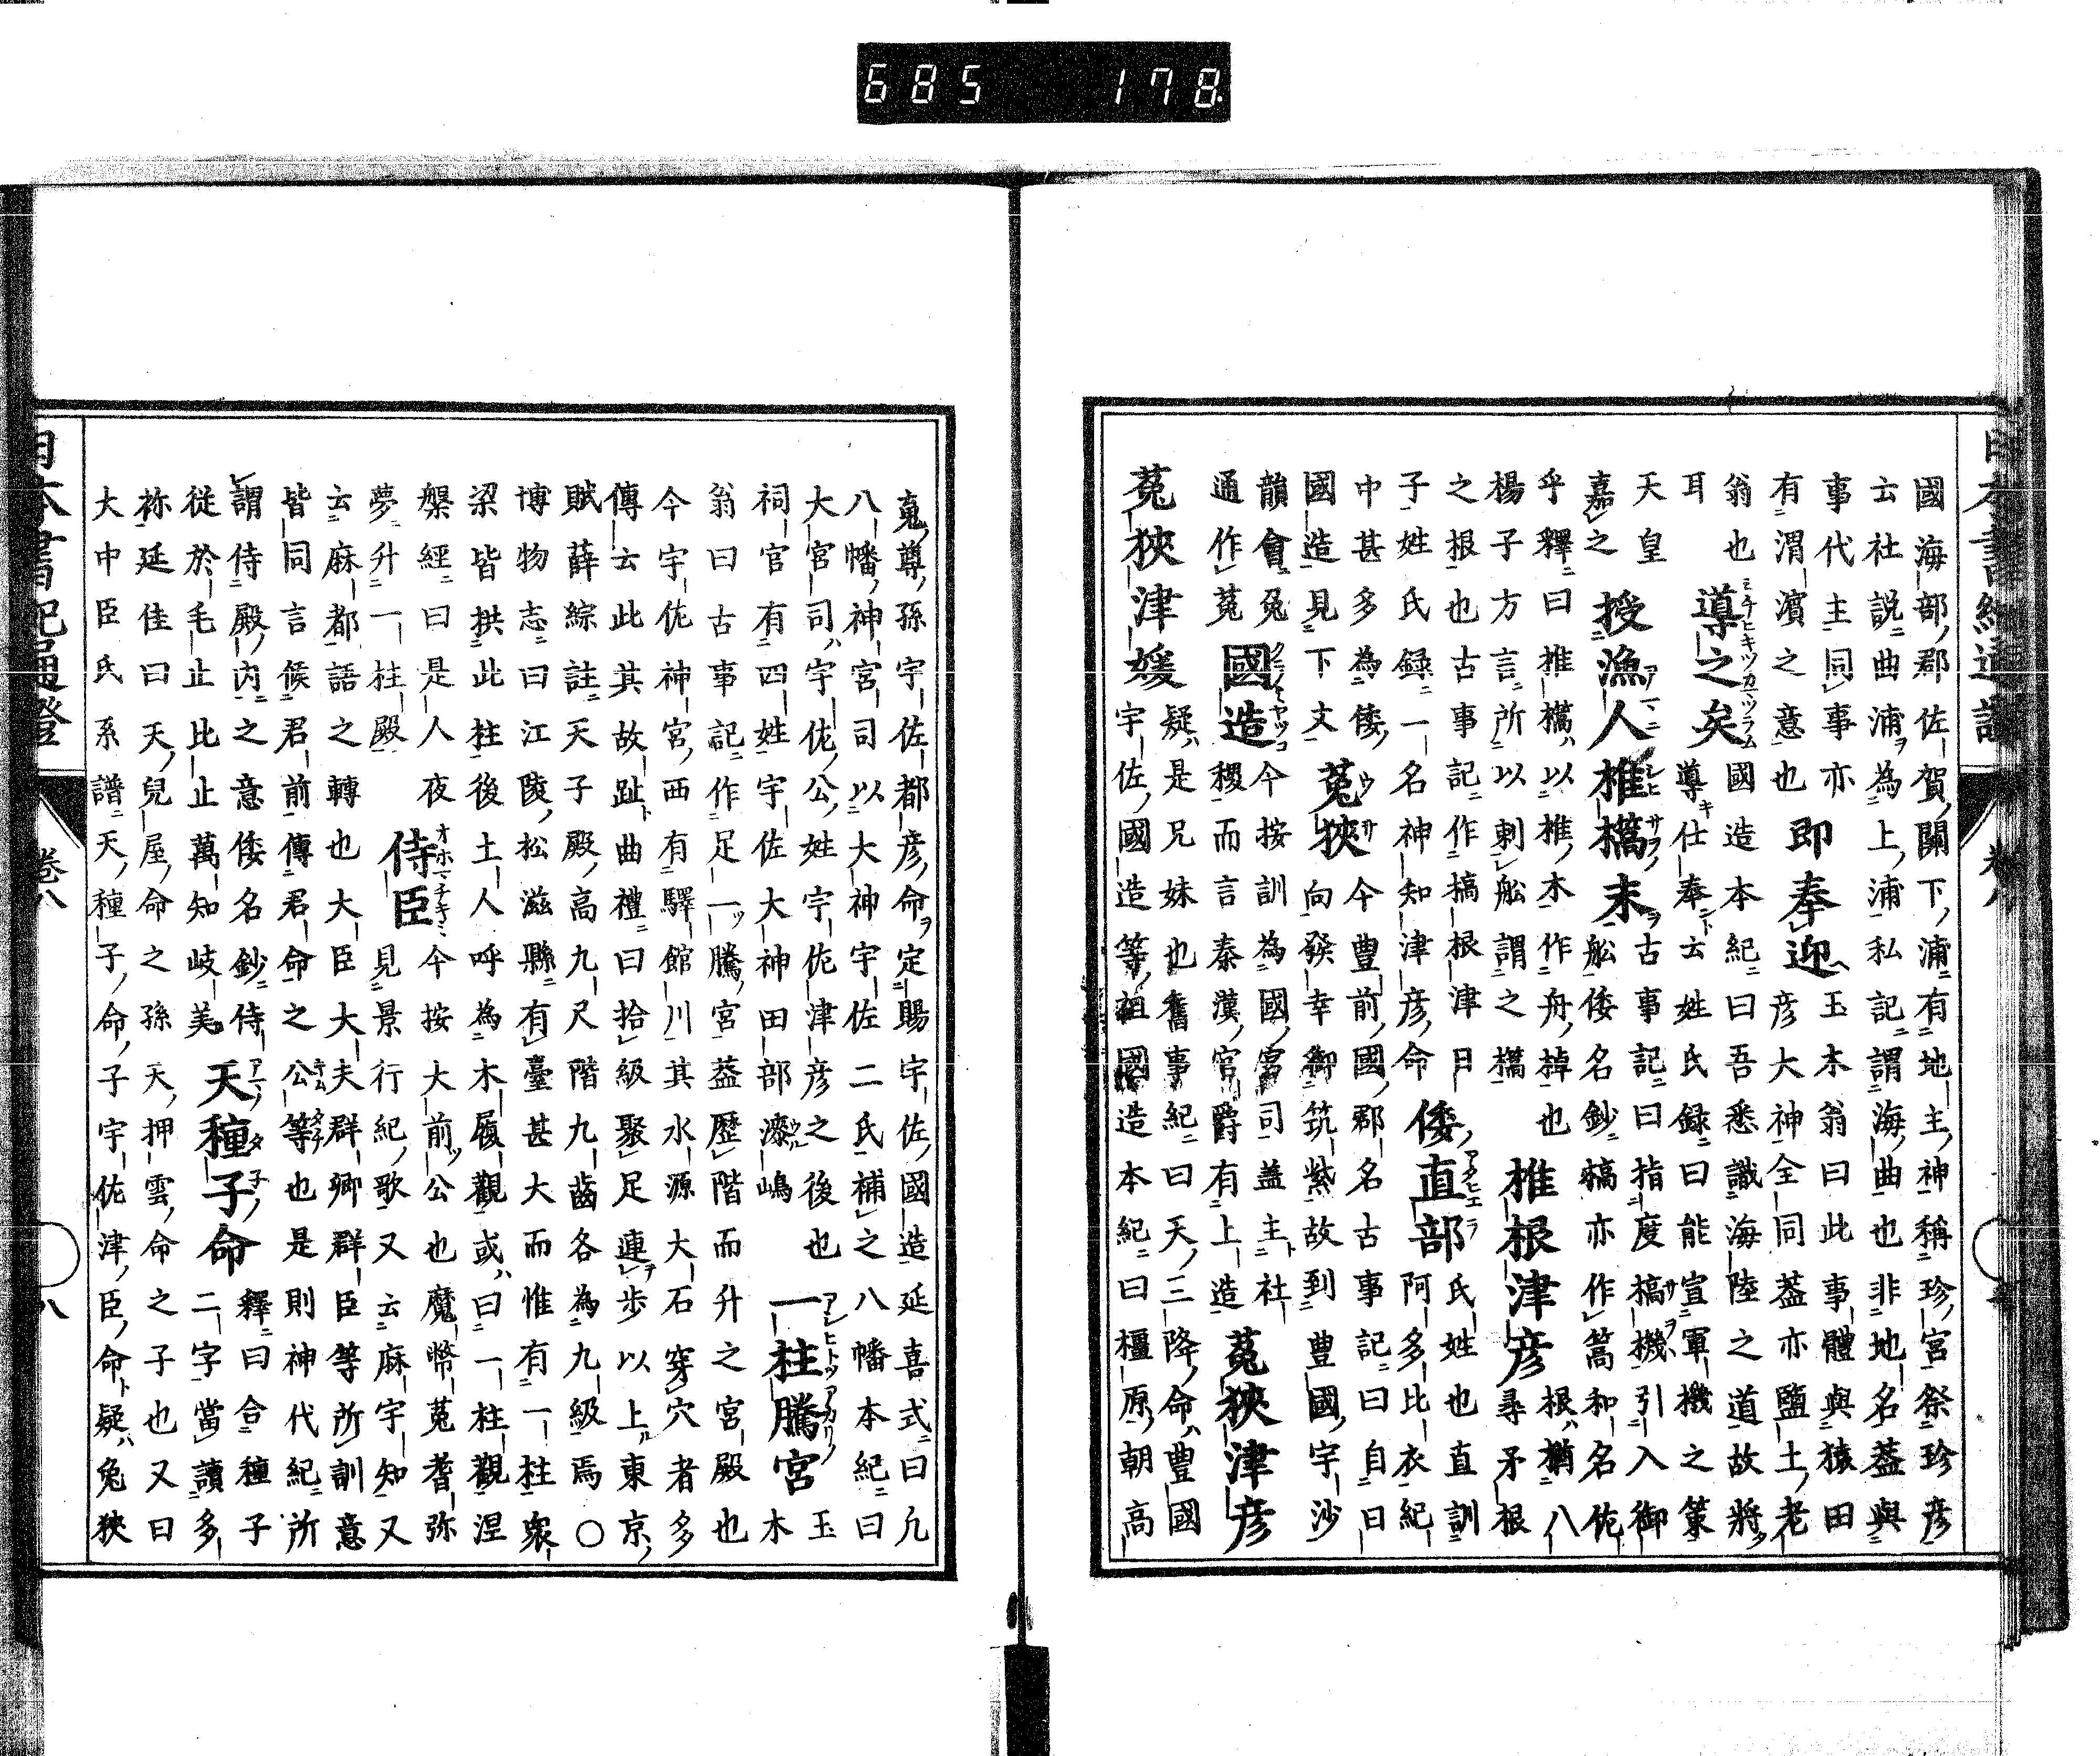 685 178
國海部郡佐賀關下浦有地主神稱珍宮祭珍彦
云社説曲浦為上浦私記謂海曲也非地名蓋與
事代主同事亦
有渭濱之意也
即奉迎
玉木翁曰此事體與猿田
彦大神全同蓋亦鹽土老
翁也
耳
導之矣
國造本紀曰吾悉識海陸之道故將
導仕奉云姓氏録曰能宣軍機之策
天皇
嘉之
授漁人椎檇末
古事記曰指度槁機引入御
船倭名鈔槁亦作篙和名佐
乎釋曰椎檇以椎木作舟棹也
楊子方言所以刺船謂之檇
椎根津彦
根猶八
尋矛根
之根也古事記作槁根津日
子姓氏録一名神知津彦命
倭直部
氏姓也直訓
阿多比衣紀
中甚多為倭
國造見下文
菟狹
今豊前國郡名古事記曰自日
向發幸御筑紫故到豊國宇沙
韻會兔
通作菟
國造
今按訓為國宮司蓋主社
稷而言秦漢官爵有上造
菟狹津彦
菟狹津媛
疑是兄妹也舊事紀曰天三降命豊國
宇佐國造等祖國造本紀曰橿原朝高
魂尊孫宇佐都彦命定賜宇佐國造延喜式曰凡
八幡神宮司以大神宇佐二氏補之八幡本紀曰
大宮司宇佐公姓宇佐津彦之後也
祠官有四姓宇佐大神田部漆嶋
一柱騰宮
玉
木
翁曰古事記作足一騰宮蓋歷階而升之宮殿也
今宇佐神宮西有驛館川其水源大石穿穴者多
傳云此其故趾曲禮曰拾級聚足連歩以上東京
賦薛綜註天子殿高九尺階九齒各為九級焉○
博物志曰江陵松滋縣有臺甚大而惟有一柱衆
梁皆拱此柱後土人呼為木履觀或曰一柱觀涅
槃經曰是人夜
夢升一柱殿
侍臣
今按大前公也魔幣菟耆弥
見景行紀歌又云麻宇知又
云麻都語之轉也大臣大夫群卿群臣等所訓意
皆同言候君前傳君命之公等也是則神代紀所
謂侍殿内之意倭名鈔侍
從於毛止比止萬知岐美
天種子命
釋曰合種子
二字當讀多
祢延佳曰天兒屋命之孫天押雲命之子也又曰
大中臣氏系譜天種子命子宇佐津臣命疑兔狹
日本書紀通證
卷八
八